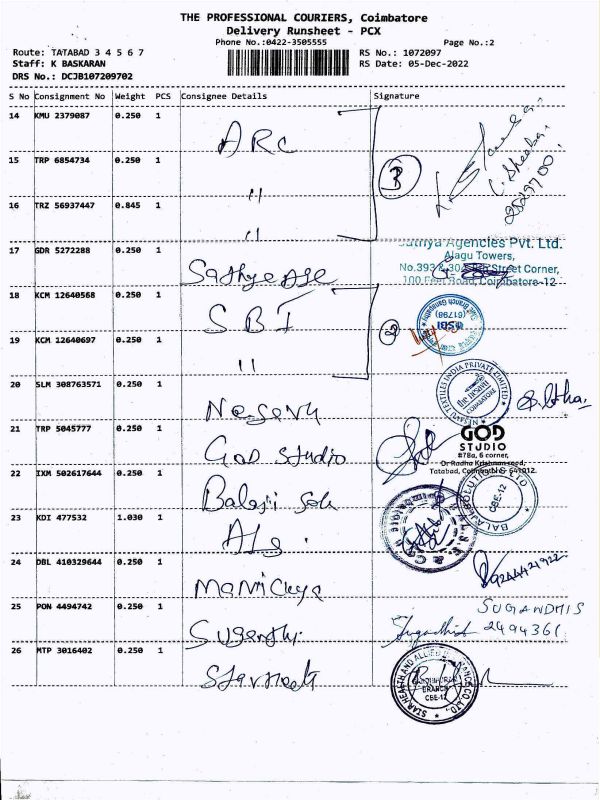 THE PROFESSIONAL COURIERS, Coimbatore
Delivery Runsheet - PCX
Phone No.:0422-3505555
Page No.:2
Route: TATABAD 3 4 5 6 7
RS No.: 1072097
Staff: K BASKARAN
RS Date: 05-Dec-2022
DRS No.: DCJB107209702
S No Consignment No Weight PCS Consignee Details Signature
14 KMU 2379087 0.250 1
ARC
15 TRP 6854734 0.250 1
"
3
16 TRZ 56937447 0.845 1
"
17 GDR 5272288 0.250 1
Agencies Pvt. Ltd.
Alagu Towers,
Street Corner,
100 Feet Road, Coimbatore-12
18 KCM 12640568 0.250 1
SBI
2
19 KCM 12640697 0.250 1
"
20 SLM 308763571 0.250 1
TEXTILES INDIA PRIVATE LIMITED
COIMBATORE
21 TRP 5045777 0.250 1
God Studio
GOD
STUDIO
#78a, 6 corner,
Dr Radha Krishnan road,
Tatabad, Coimbatore - 641012.
22 IXM 502617644 0.250 1
Balaji
CBE-12
23 KDI 477532 1.030 1
24 DBL 410329644 0.250 1
9244421922
25 PON 4494742 0.250 1
SUGANDHIS
2494361
26 MTP 3016402 0.250 1
STAR HEALTH AND ALLIED INSURANCE CO. LTD.,
BRANCH
CBE-12